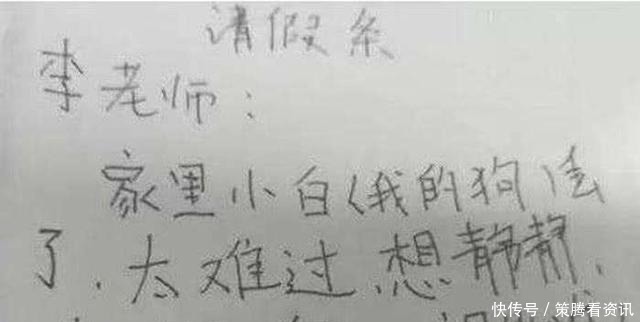 请假条
李老师:
家里小白(我的狗)去
了.太难过.想静静.
快传号/策腾看资讯